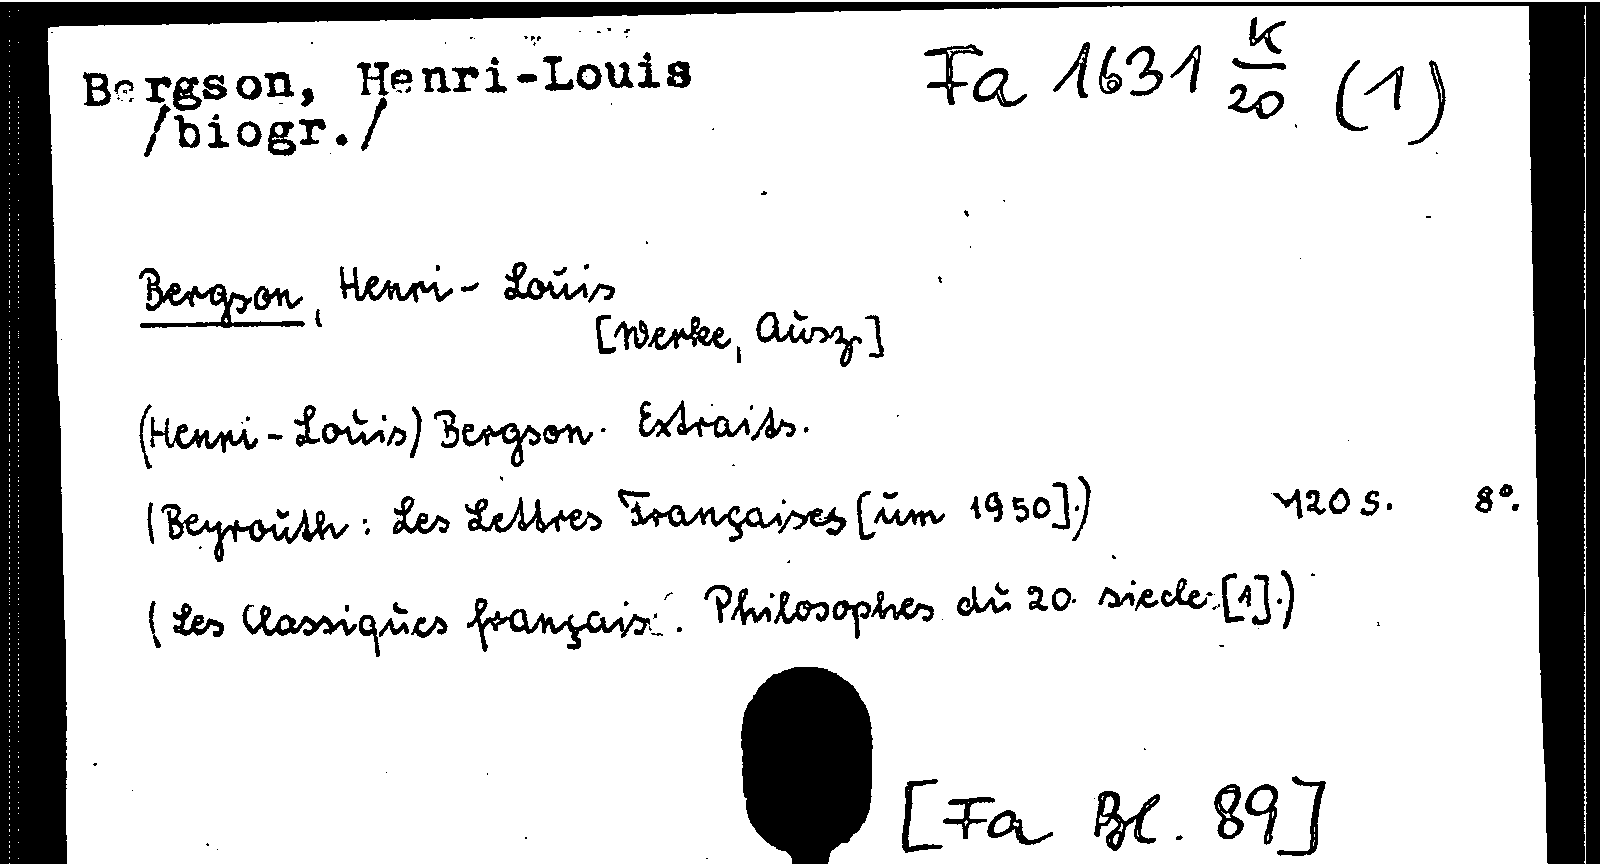 Bergson, Henri-Louis
/biogr./
Fa 1631 K/20 (1)
Bergson, Henri-Louis
[Werke, Ausz.]
(Henri-Louis) Bergson. Extraits.
(Beyrouth: Les Lettres Françaises [um 1950].) 120 S. 8°.
(Les Classiques français. Philosophes du 20. siecle. [1].)
[Fa Bl. 89]